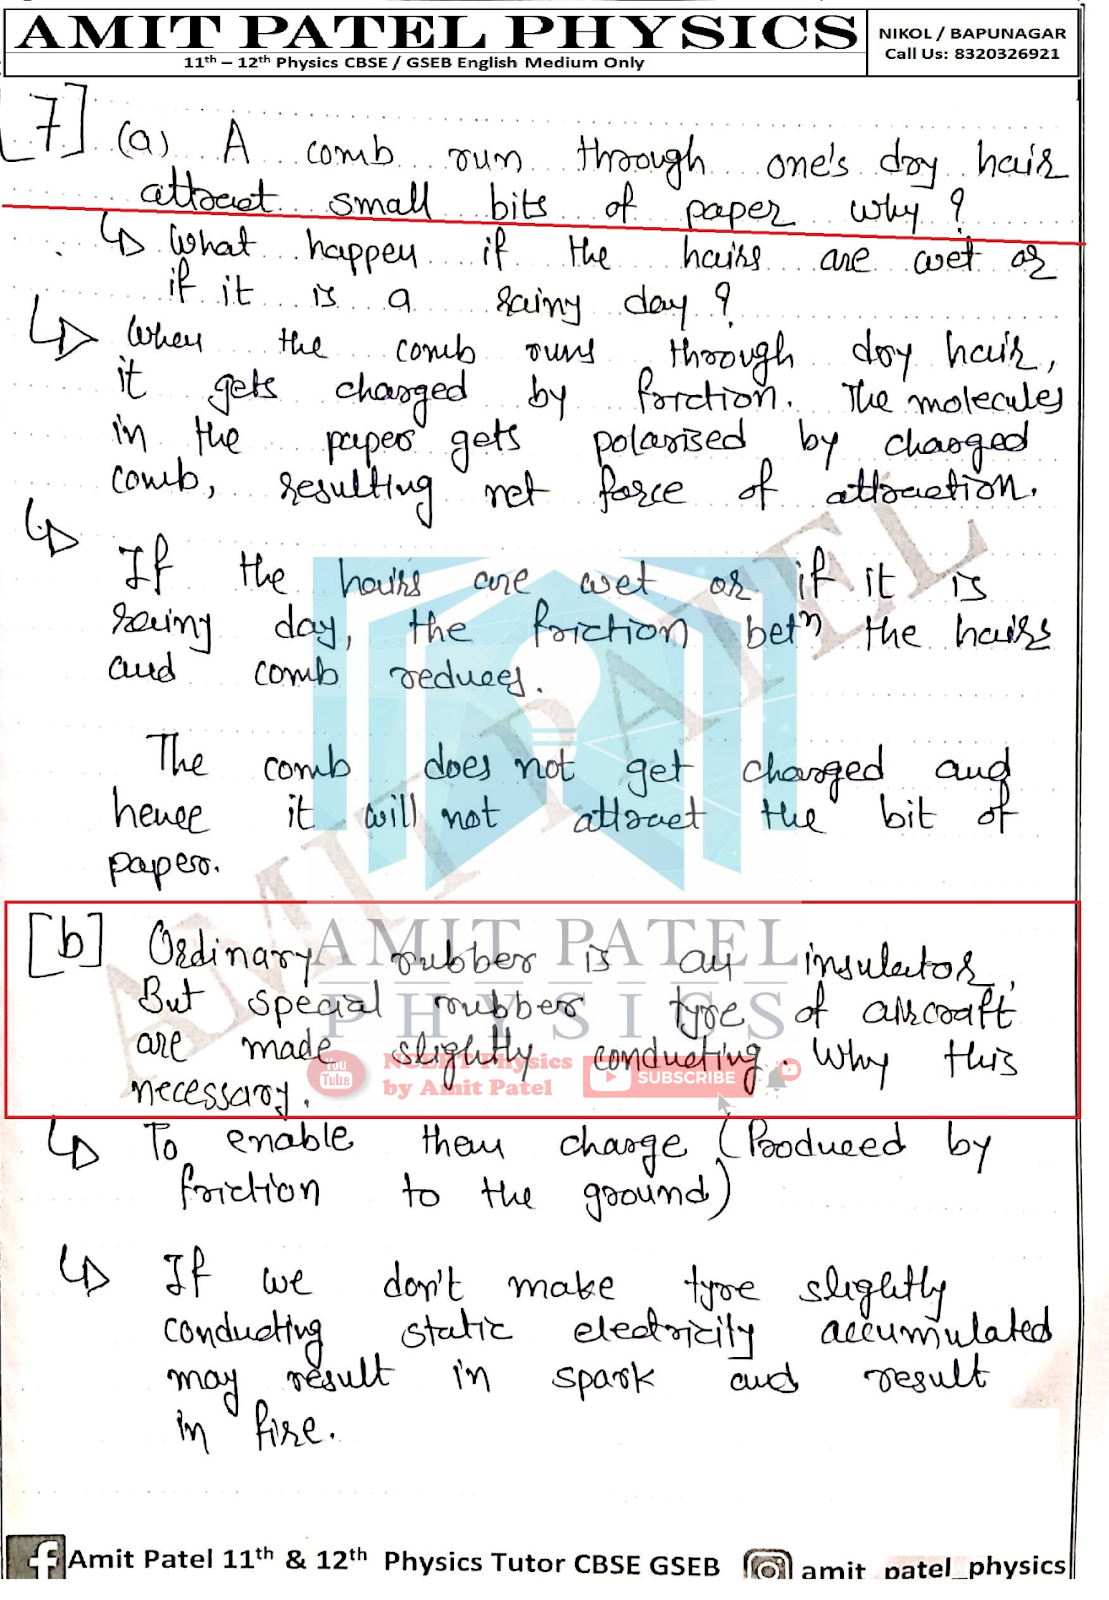 AMIT PATEL PHYSICS
11th – 12th Physics CBSE / GSEB English Medium Only
NIKOL / BAPUNAGAR
Call Us: 8320326921
[7] (a) A comb run through one's dry hair
attract small bits of paper why?
↳ What happen if the hairs are wet or
if it is a rainy day?
↳ When the comb runs through dry hair,
it gets charged by friction. The molecules
in the paper gets polarised by charged
comb, resulting net force of attraction.
↳ If the hairs are wet or if it is
rainy day, the friction betn the hairs
and comb reduces.
The comb does not get charged and
hence it will not attract the bit of
paper.
AMIT PATEL
[b] Ordinary rubber is an insulator,
But special rubber tyre of aircraft
are made slightly conducting. Why this
necessary.
AMIT PATEL
PHYSICS
You Tube
NCERT Physics
by Amit Patel
SUBSCRIBE
↳ To enable them charge (Produced by
friction to the ground)
↳ If we don't make tyre slightly
conducting static electricity accumulated
may result in spark and result
in fire.
Amit Patel 11th & 12th Physics Tutor CBSE GSEB
amit_patel_physics